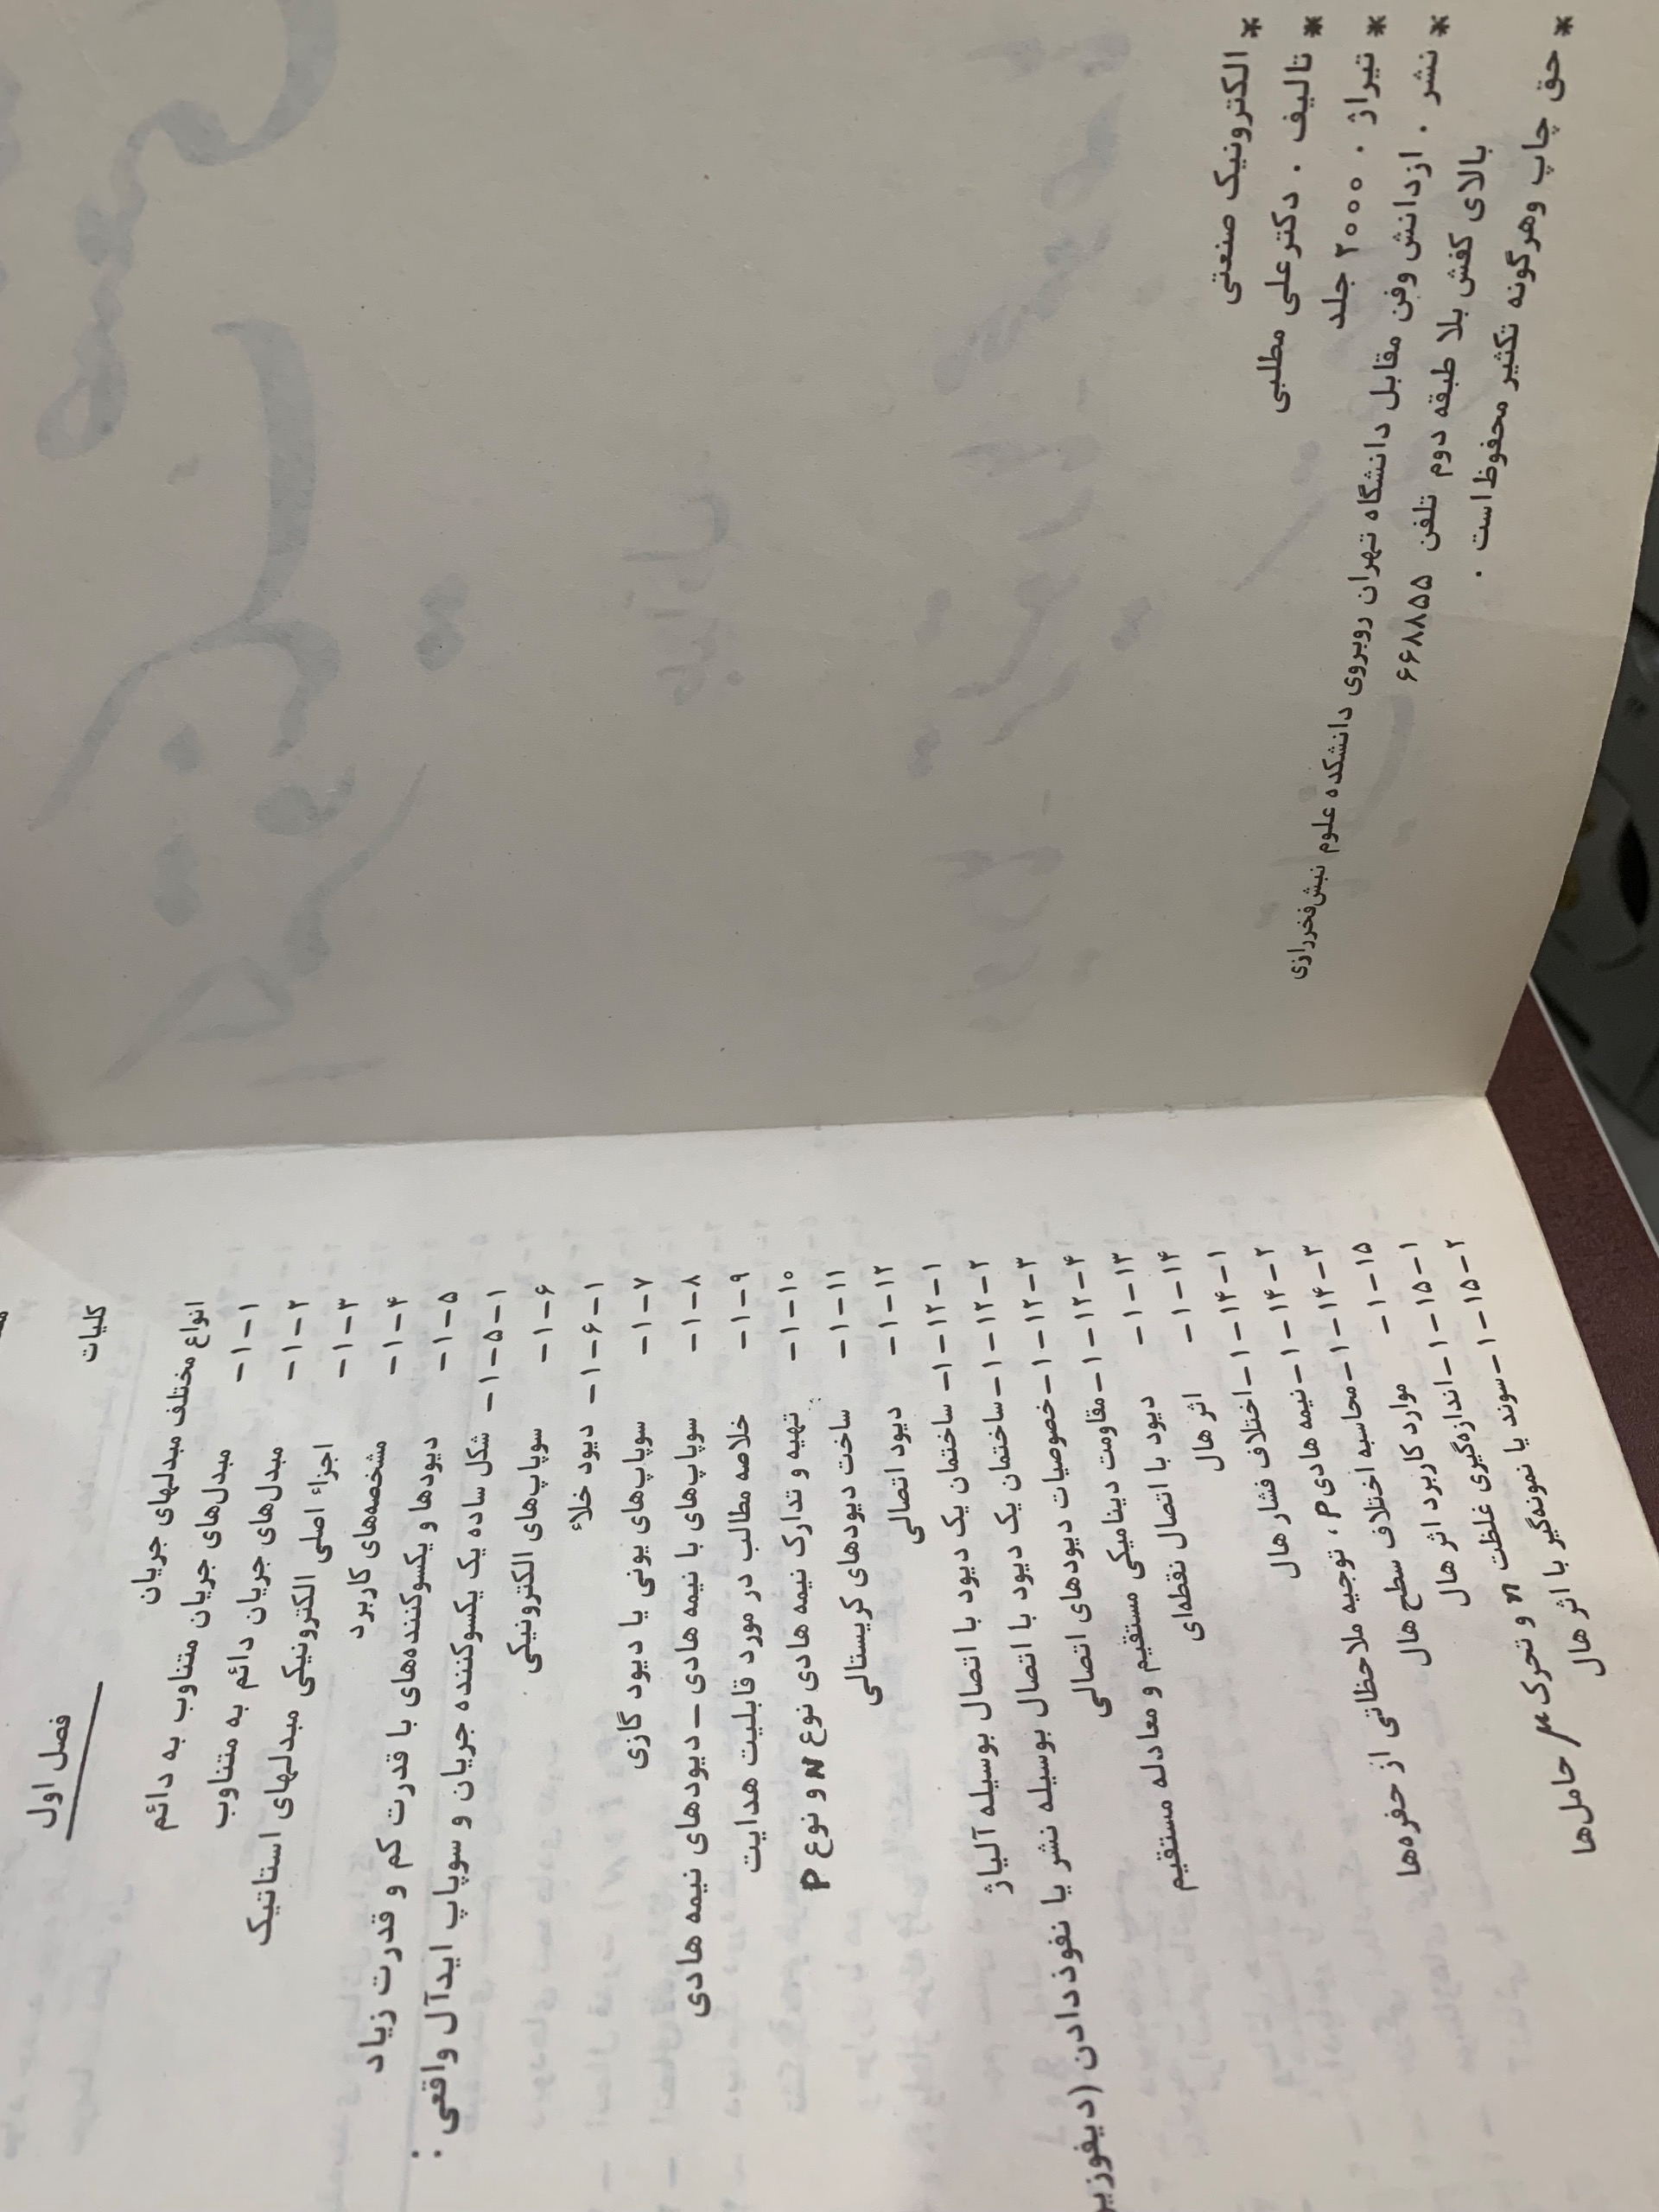 * الکترونیک صنعتی
* تالیف . دکتر علی مطلبی
* تیراژ . ۲۰۰۰ جلد
* نشر . از دانش وفن مقابل دانشگاه تهران روبروی دانشکده علوم نبش فخررازی
بالای کفش بلا طبقه دوم تلفن ۶۶۸۸۵۵
* حق چاپ وهرگونه تکثیر محفوظ است .
فصل اول
کلیات
انواع مختلف مبدلهای جریان
۱-۱- مبدل‌های جریان متناوب به دائم
۱-۲- مبدل‌های جریان دائم به متناوب
۱-۳- اجزاء اصلی الکترونیکی مبدلهای استاتیک
۱-۴- مشخصه‌های کاربرد
۱-۵- دیودها و یکسوکننده‌های با قدرت کم و قدرت زیاد
۱-۵-۱- شکل ساده یک یکسوکننده جریان و سوپاپ ایدآل واقعی :
۱-۶- سوپاپ‌های الکترونیکی
۱-۶-۱- دیود خلاء
۱-۷- سوپاپ‌های یونی یا دیود گازی
۱-۸- سوپاپ‌های با نیمه هادی – دیودهای نیمه هادی
۱-۹- خلاصه مطالب در مورد قابلیت هدایت
۱-۱۰- تهیه و تدارک نیمه هادی نوع N و نوع P
۱-۱۱- ساخت دیودهای کریستالی
۱-۱۲- دیود اتصالی
۱-۱۲-۱- ساختمان یک دیود با اتصال بوسیله آلیاژ
۱-۱۲-۲- ساختمان یک دیود با اتصال بوسیله نشر یا نفوذ دادن (دیفوزیر
۱-۱۲-۳- خصوصیات دیودهای اتصالی
۱-۱۲-۴- مقاومت دینامیکی مستقیم و معادله مستقیم
۱-۱۳- دیود با اتصال نقطه‌ای
۱-۱۴- اثر هال
۱-۱۴-۱- اختلاف فشار هال
۱-۱۴-۲- نیمه هادی P ، توجیه ملاحظاتی از حفره‌ها
۱-۱۴-۳- محاسبه اختلاف سطح هال
۱-۱۵- موارد کاربرد اثر هال
۱-۱۵-۱- اندازه‌گیری غلظت n و تحرک μ حامل‌ها
۱-۱۵-۲- سوند یا نمونه‌گیر با اثر هال